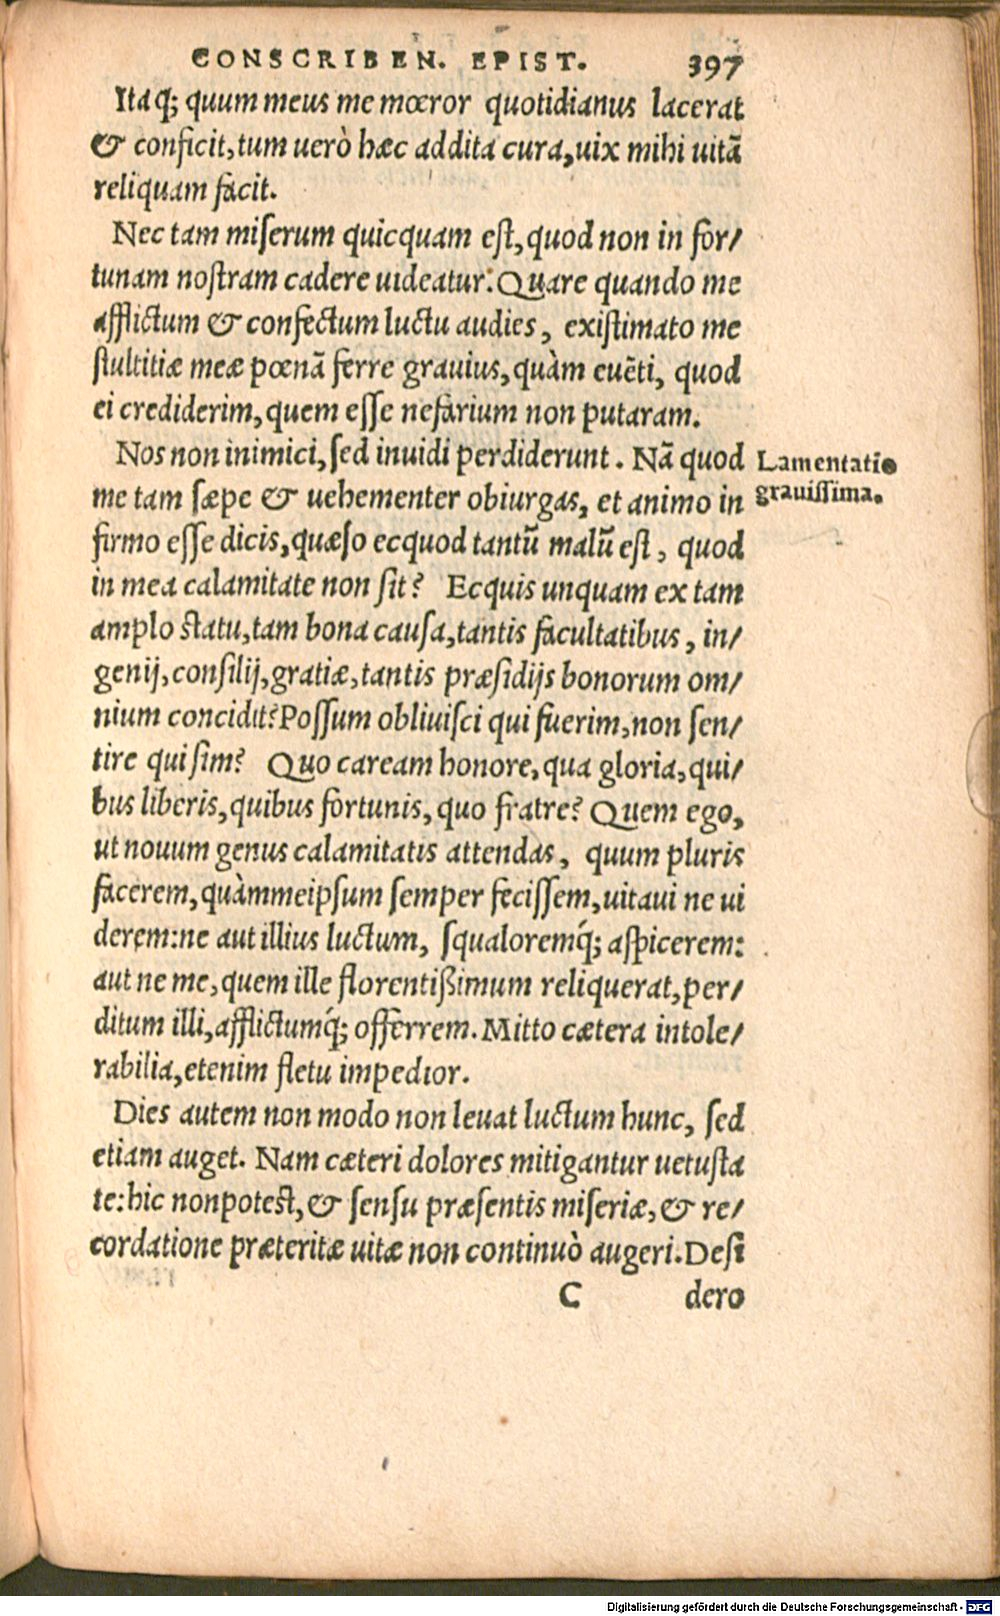 CONSCRIBEN. EPIST. 397
Itaq; quum meus me mœror quotidianus lacerat
& conficit, tum uerò hæc addita cura, uix mihi uitã
reliquam facit.
Nec tam miserum quicquam est, quod non in for/
tunam nostram cadere uideatur: Quare quando me
afflictum & confectum luctu audies, existimato me
stultitiæ meæ pœnã ferre grauius, quàm euẽti, quod
ei crediderim, quem esse nefarium non putaram.
Nos non inimici, sed inuidi perdiderunt. Nã quod
Lamentatio
me tam sæpe & uehementer obiurgas, et animo in
grauissima.
firmo esse dicis, quæso ecquod tantũ malũ est, quod
in mea calamitate non sit? Ecquis unquam ex tam
amplo statu, tam bona causa, tantis facultatibus, in/
genij, consilij, gratiæ, tantis præsidijs bonorum om/
nium concidit? Possum obliuisci qui fuerim, non sen/
tire qui sim? Quo caream honore, qua gloria, qui/
bus liberis, quibus fortunis, quo fratre? Quem ego,
ut nouum genus calamitatis attendas, quum pluris
facerem, quàmmeipsum semper fecissem, uitaui ne ui
derem: ne aut illius luctum, squaloremq́; aspicerem:
aut ne me, quem ille florentißimum reliquerat, per/
ditum illi, afflictumq́; offerrem. Mitto cætera intole/
rabilia, etenim fletu impedior.
Dies autem non modo non leuat luctum hunc, sed
etiam auget. Nam cæteri dolores mitigantur uetusta
te: hic nonpotest, & sensu præsentis miseriæ, & re/
cordatione præteritæ uitæ non continuò augeri. Desi
C dero
Digitalisierung gefördert durch die Deutsche Forschungsgemeinschaft - DFG